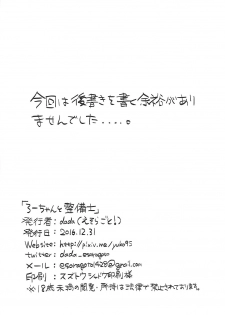 今回は後書きを書く余裕があり
ませんでした....。
「ろーちゃんと整備士」
発行者: dada(えそらごと!)
発行日: 2016.12.31
Website: http://pixiv.me/yuko95
twitter: dada_esoragoto
メール:
印刷: スズトウシャドウ印刷様
※18歳未満の閲覧・所持は法律で禁止されております。